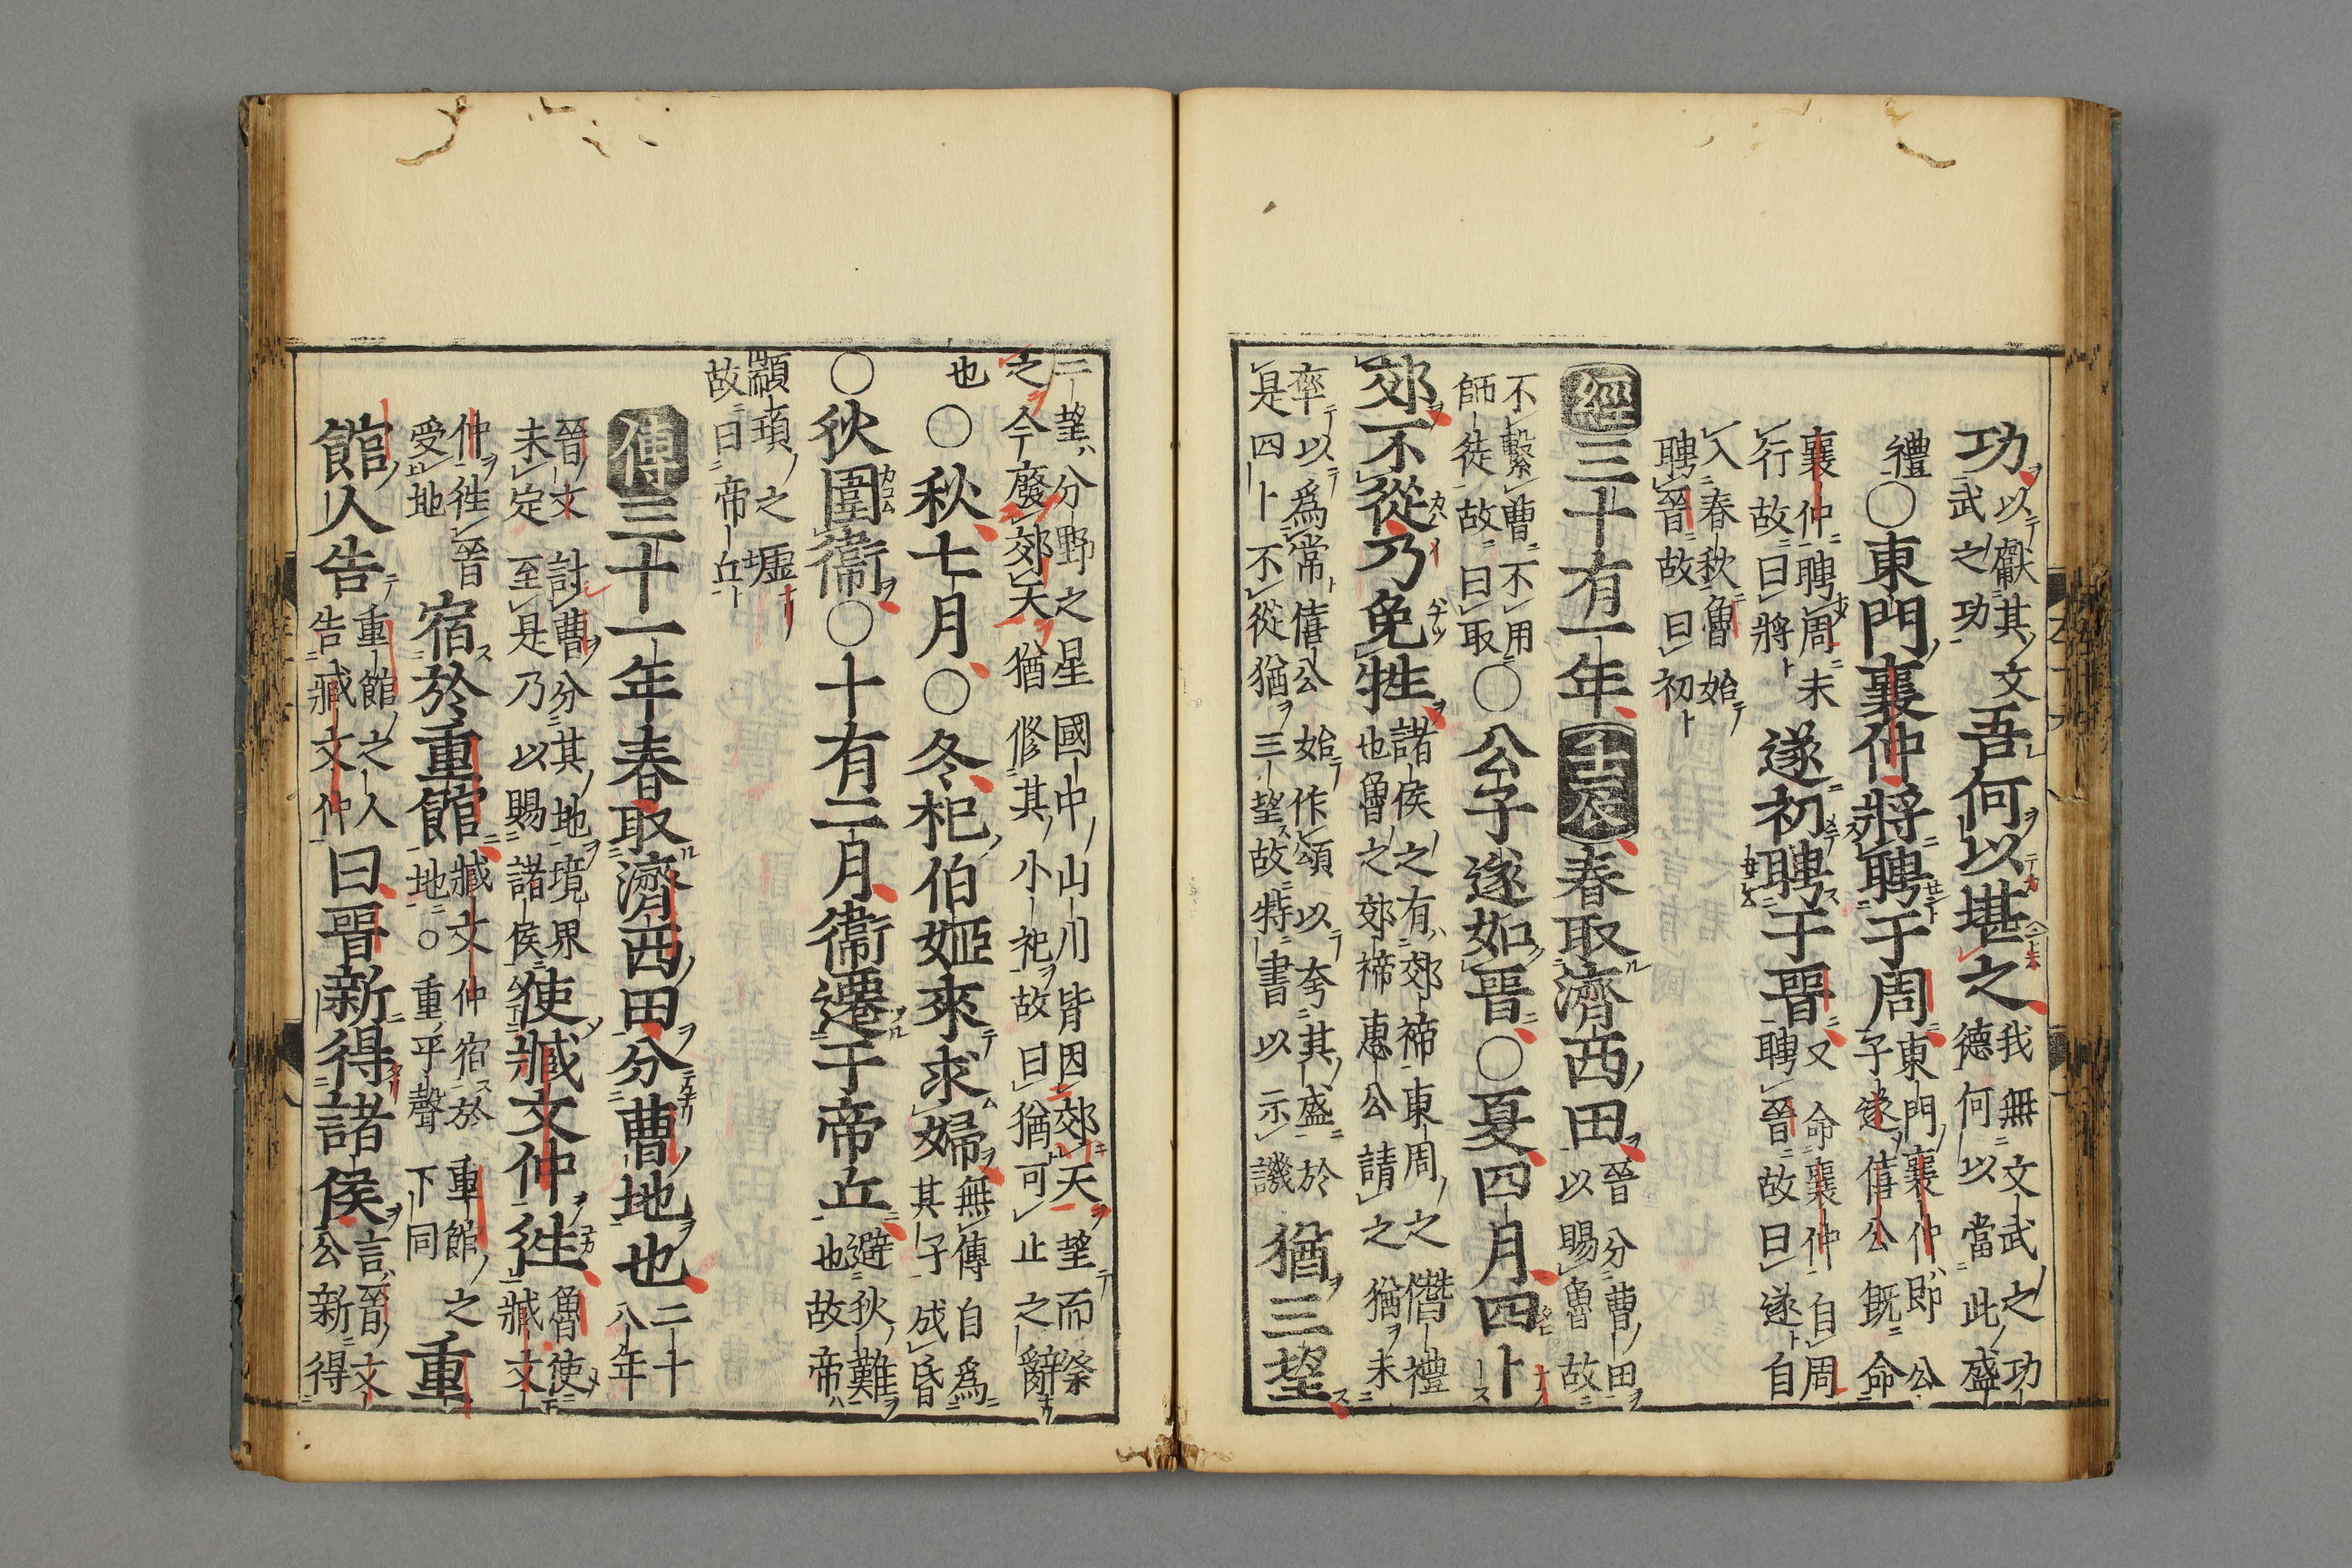 功以獻其文武之功吾何以堪之我無文武之功德何以當此盛
禮○東門襄仲將聘于周東門襄仲即公子遂僖公既命
襄仲聘周未行故曰將遂初聘于晉又命襄仲自周聘晉故曰遂自
入春秋魯始聘晉故曰初
經三十有一年壬辰春取濟西田晉分曹田以賜魯故
不繫曹不用師徒故曰取○公子遂如晉○夏四月四卜
郊不從乃免牲諸侯之有郊禘東周之僭禮也魯之郊禘惠公請之猶未
率以爲常僖公始作頌以夸其盛於是四卜不從猶三望故特書以示譏猶三望
三望分野之星國中山川皆因郊天望而祭之今廢郊天猶修其小祀故曰猶可止之辭
也○秋七月○冬杞伯姬來求婦無傳自爲其子成昏
○狄圍衞○十有二月衞遷于帝丘避狄難也故帝
顓頊之墟故曰帝丘
傳三十一年春取濟西田分曹地也二十八年
晉文討曹分其地境界未定至是乃以賜諸侯使臧文仲徃魯使臧文
仲徃晉受地宿於重館臧文仲宿於重館之地○重乎聲下同重
館人告重館之人告臧文仲曰晉新得諸侯言晉文公新得